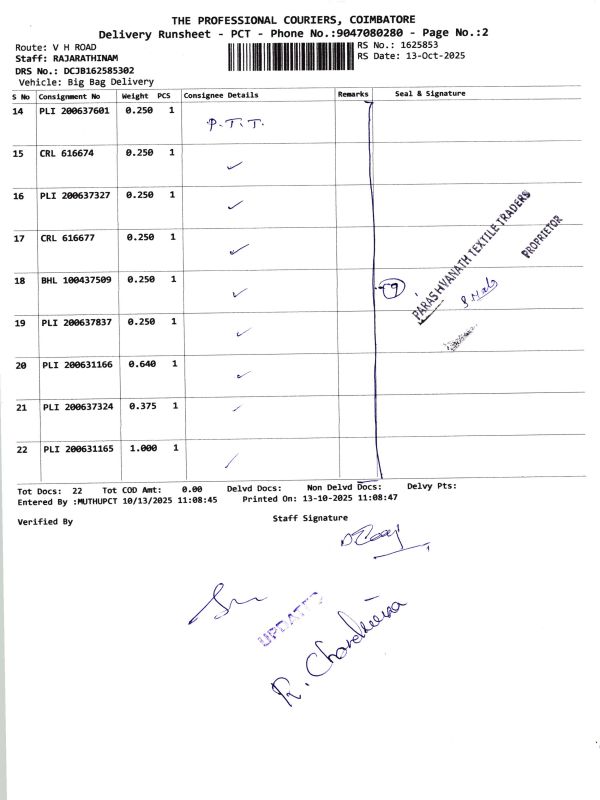 THE PROFESSIONAL COURIERS, COIMBATORE
Delivery Runsheet - PCT - Phone No.:9047080280 - Page No.:2
Route: V H ROAD
RS No.: 1625853
Staff: RAJARATHINAM
RS Date: 13-Oct-2025
DRS No.: DCJB162585302
Vehicle: Big Bag Delivery
S No Consignment No Weight PCS Consignee Details Remarks Seal & Signature
14 PLI 200637601 0.250 1 P.T.T.
15 CRL 616674 0.250 1
16 PLI 200637327 0.250 1
17 CRL 616677 0.250 1
18 BHL 100437509 0.250 1
19 PLI 200637837 0.250 1
20 PLI 200631166 0.640 1
21 PLI 200637324 0.375 1
22 PLI 200631165 1.000 1
PARASHVANATH TEXTILE TRADERS
PROPRIETOR
Tot Docs: 22 Tot COD Amt: 0.00 Delvd Docs: Non Delvd Docs: Delvy Pts:
Entered By :MUTHUPCT 10/13/2025 11:08:45 Printed On: 13-10-2025 11:08:47
Verified By Staff Signature
UPDATED